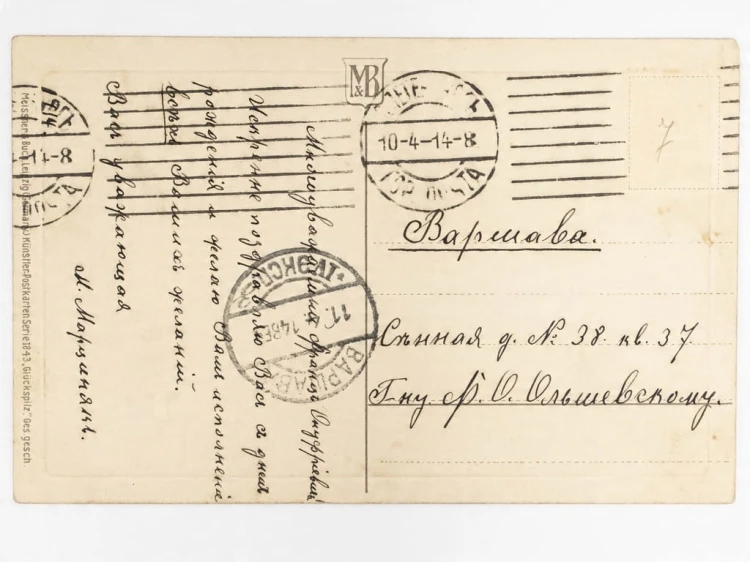 Многоуважаемый Францъ Онуфріевичъ
Искренне поздравляю Васъ съ днемъ
рожденія и желаю Вамъ исполненія
всѣхъ Вашихъ желаній.
Васъ уважающая
М. Марциникъ.
M&B
10-4-14-8
ГОР. ПОЧТА
14-8
ПОЧТА
7
Варшава.
Сѣнная д. № 38. кв. 37.
Гну Ф. О. Ольшевскому.
IV ЭКСП.
11.
ВАРШАВА
Meissner & Buch, Leipzig (Germany) Künstler-Postkarten Serie 1843 „Glückspilz." Ges. gesch.